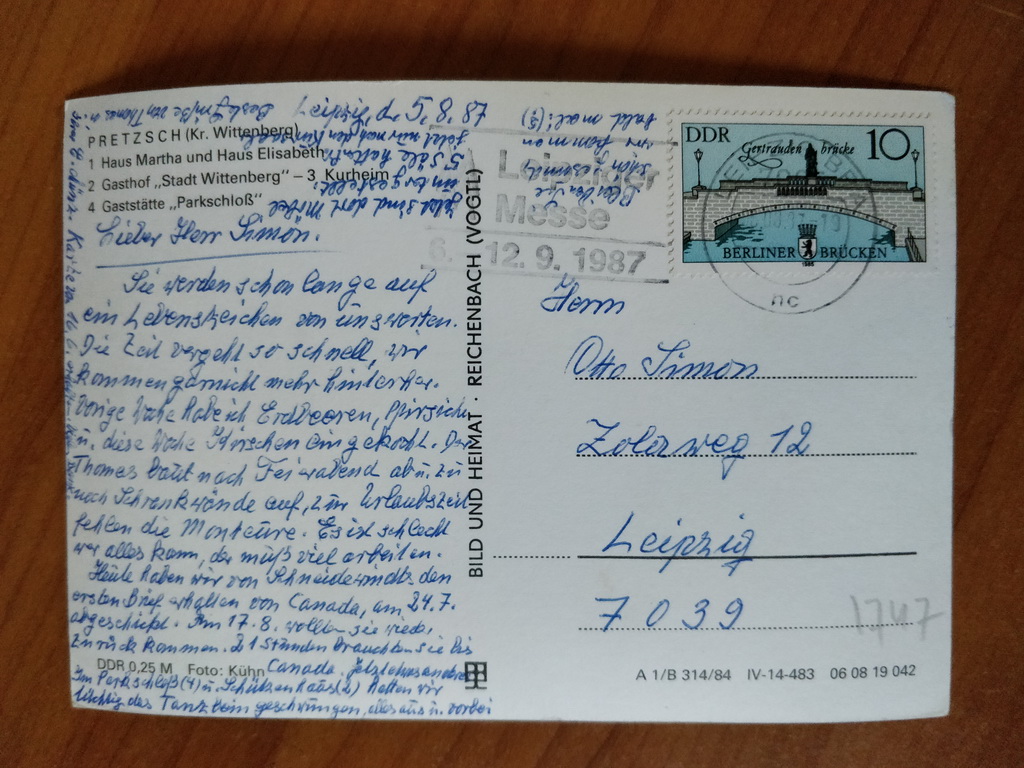 PRETZSCH (Kr. Wittenberg)
1 Haus Martha und Haus Elisabeth
2 Gasthof „Stadt Wittenberg" – 3 Kurheim
4 Gaststätte „Parkschloß"
Lieber Herr Simon.
Sie werden schon lange auf
ein Lebenszeichen von uns warten.
Die Zeit vergeht so schnell, wir
kommen garnicht mehr hinterher.
Vorige Woche habe ich Erdbeeren, Pfirsiche
u. diese Woche Kirschen eingekocht. Der
Thomas baut nach Feierabend ab u. zu
noch Schrankwände auf, zur Urlaubszeit
fehlen die Monteure. Es ist schlecht
wer alles kann, der muß viel arbeiten.
Heute haben wir von den
ersten Brief erhalten von Canada, am 24.7.
abgeschickt. Am 17.8. wollen sie wieder
zurück kommen. 21 Stunden brauchten sie bis
Canada.
Im Parkschloß (4) u. Schützenhaus (2) hatten wir
tüchtig das Tanzbein geschwungen, alles aus u. vorbei
jetzt sind dort Möbel
untergestellt.
5 Säle hatte Pr.
jetzt nur noch den Kursaal.
Bleiben Sie
schön gesund,
wir kommen
bald mal. (3)
Beste Grüße von Thomas u.
DDR 0,25 M Foto: Kühn
BILD UND HEIMAT · REICHENBACH (VOGTL)
Leipziger
Messe
6. 12. 9. 1987
DDR
Gertraudenbrücke
10
BERLINER BRÜCKEN
1985
nc
Herrn
Otto Simon
Zolaweg 12
Leipzig
7039
1747
A 1/B 314/84 IV-14-483 06 08 19 042